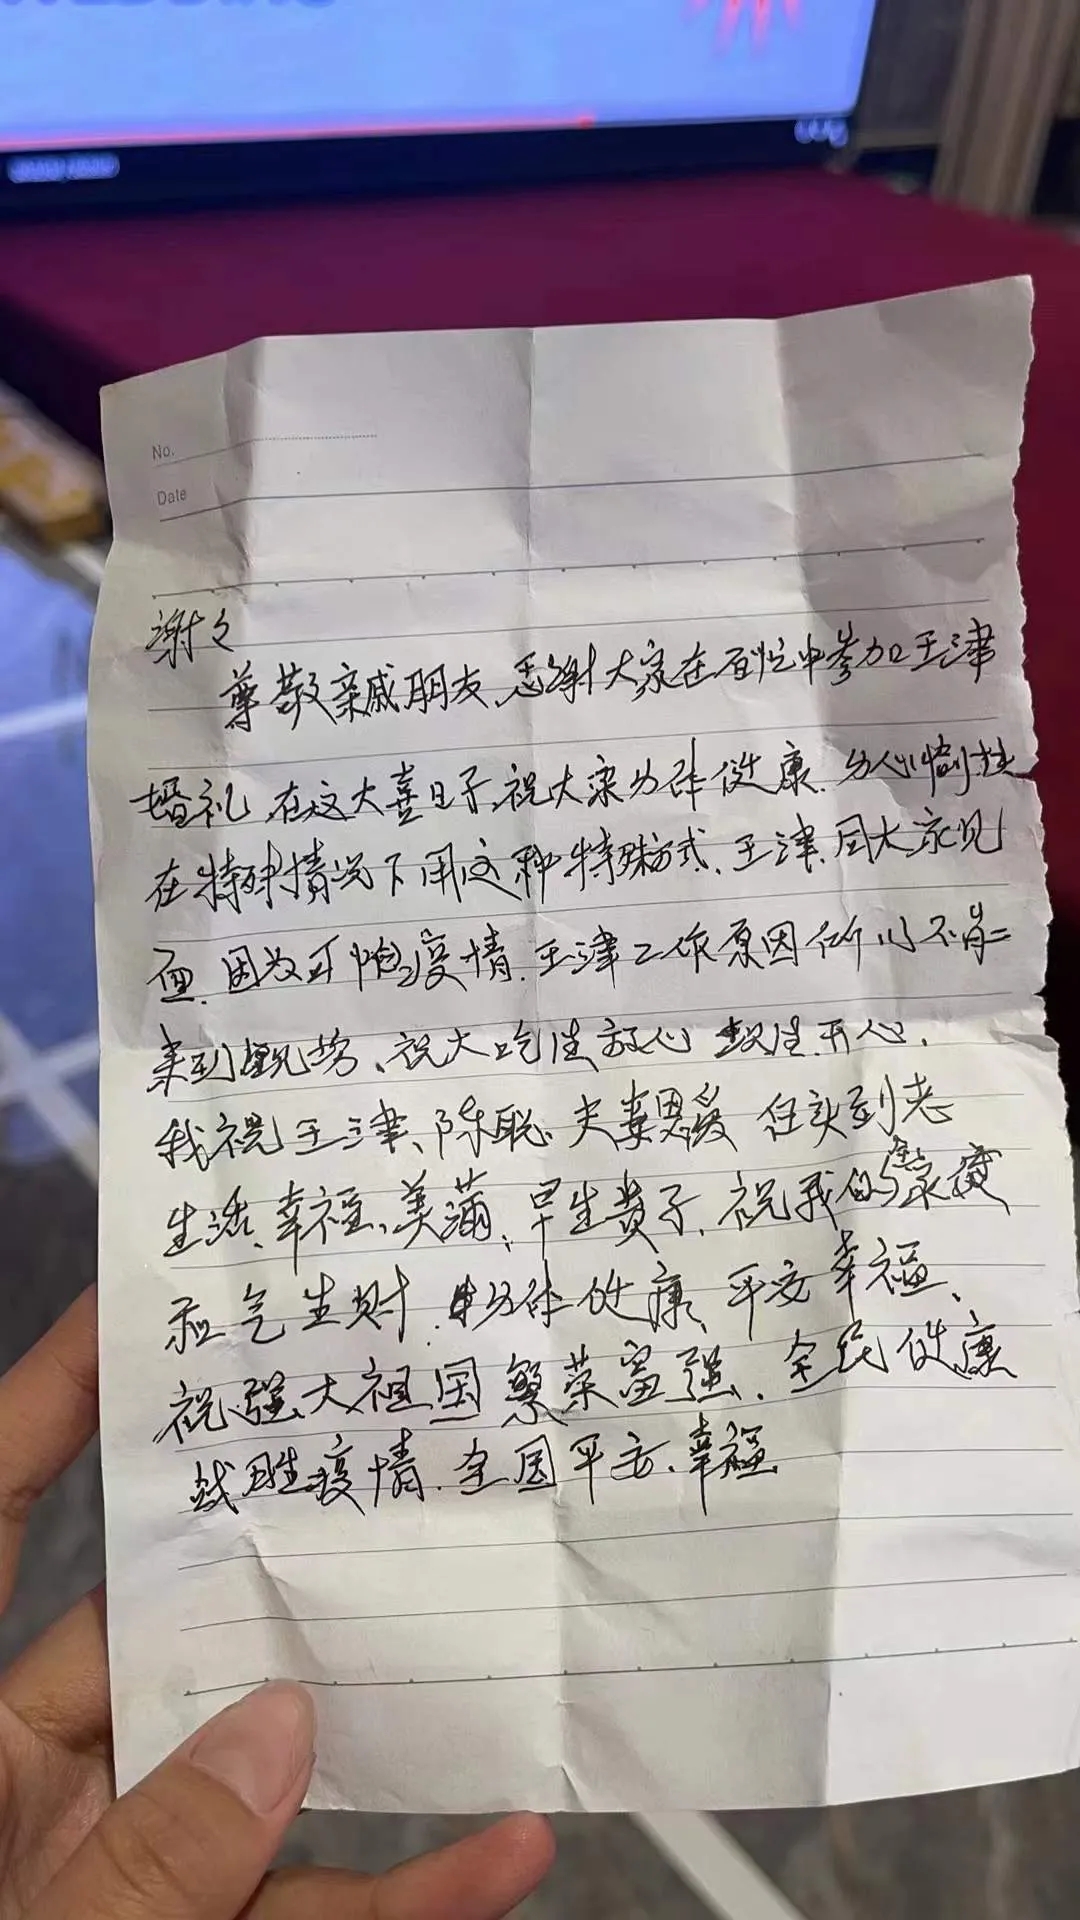 No.
Date
谢々
尊敬亲戚朋友、感谢大家在百忙中参加王津
婚礼、在这大喜日子、祝大家身体健康、心情愉快
在特殊情况下用这种特殊方式、王津、同大家见
面、因为可怕疫情、王津工作原因所以不能
来到现场、祝大吃住放心 玩住开心、
我祝王津、陈聪、夫妻恩爱 白头到老
生活、幸福、美满、早生贵子、祝我的家庭
和气生财、身体健康、平安幸福、
祝强大祖国繁荣富强、全民健康
战胜疫情、全国平安、幸福